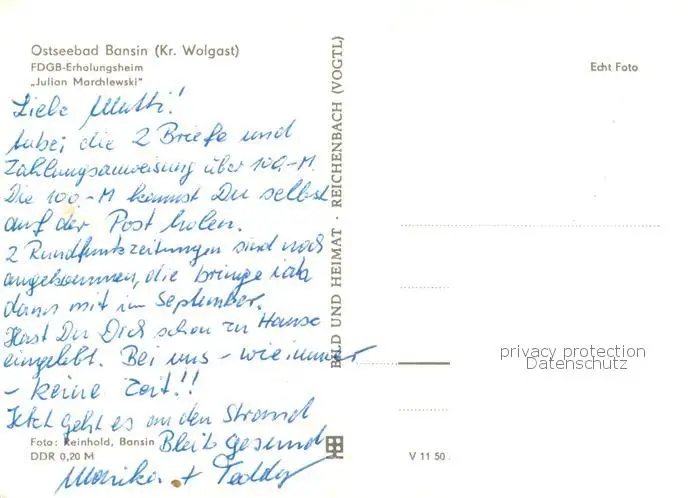 Ostseebad Bansin (Kr. Wolgast)
FDGB-Erholungsheim
„Julian Marchlewski“
Liebe Mutti!
Anbei die 2 Briefe und
Zahlungsanweisung über 100,-M.
Die 100,-M kannst Du selbst
auf der Post holen.
2 Rundfunkzeitungen sind noch
angekommen, die bringe ich
dann mit im September.
Hast Du Dich schon zu Hause
eingelebt. Bei uns – wie immer
– keine Zeit!!
Jetzt geht es an den Strand
Bleib gesund
Monika + Teddy
Foto: Reinhold, Bansin
DDR 0,20 M
BILD UND HEIMAT · REICHENBACH (VOGTL)
Echt Foto
privacy protection
Datenschutz
V 11 50